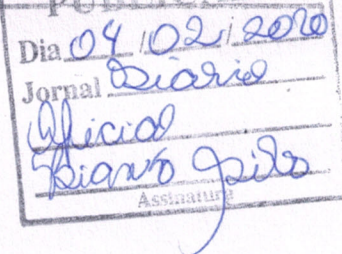 Dia 04/02/2020
Jornal Diário
Oficial
Assinatura